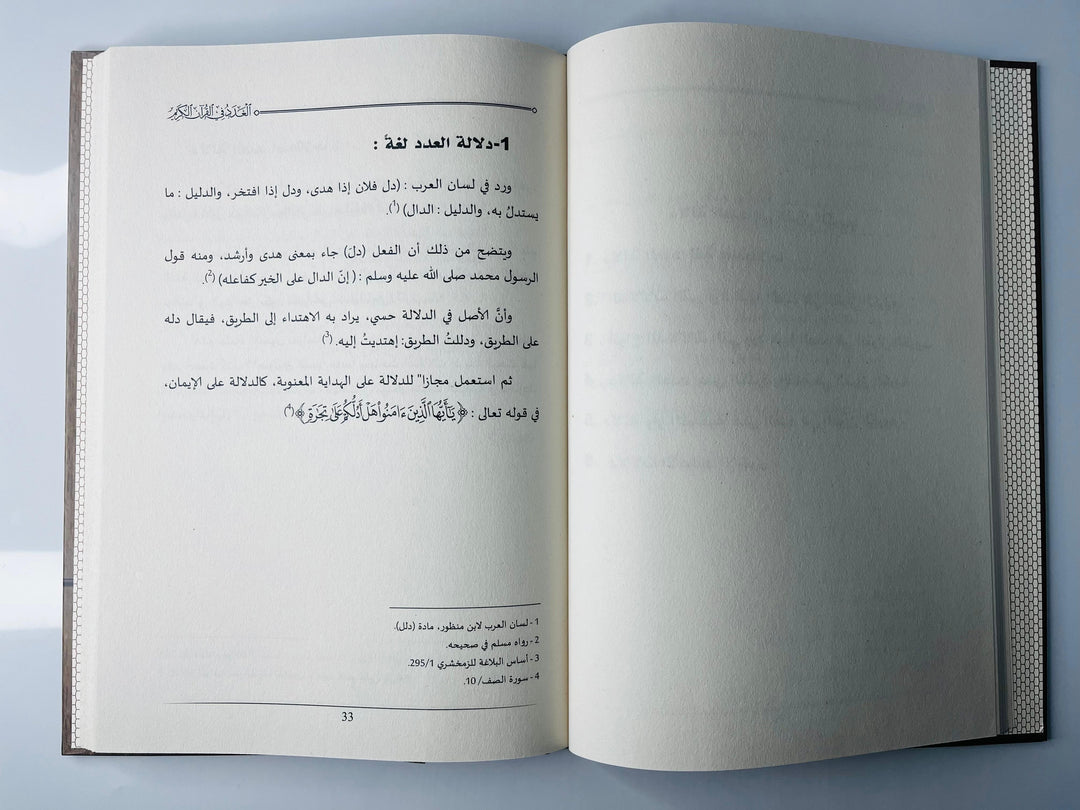 العدد في القرآن الكريم
1-دلالة العدد لغةً :
ورد في لسان العرب : (دل فلان إذا هدى، ودل إذا افتخر، والدليل : ما
يستدلُ به، والدليل : الدال) (1).
ويتضح من ذلك أن الفعل (دلَ) جاء بمعنى هدى وأرشد، ومنه قول
الرسول محمد صلى الله عليه وسلم : ( إنّ الدال على الخير كفاعله) (2).
وأنَّ الأصل في الدلالة حسي، يراد به الاهتداء إلى الطريق، فيقال دله
على الطريق، ودللتُ الطريق: إهتديتُ إليه. (3)
ثم استعمل مجازا" للدلالة على الهداية المعنوية، كالدلالة على الإيمان،
في قوله تعالى : ﴿يَٰٓأَيُّهَا ٱلَّذِينَ ءَامَنُوا۟ هَلْ أَدُلُّكُمْ عَلَىٰ تِجَٰرَةٍ﴾ (4)
1 - لسان العرب لابن منظور، مادة (دلل).
2 - رواه مسلم في صحيحه.
3 - أساس البلاغة للزمخشري 295/1.
4 - سورة الصف/ 10.
33